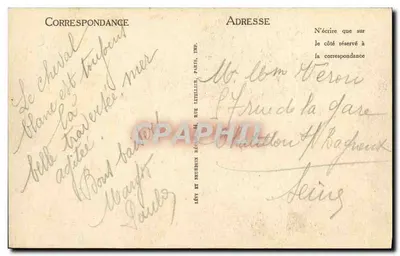 CORRESPONDANCE
ADRESSE
N'écrire que sur
le côté réservé à
la correspondance
Le cheval
blanc est toujours
là
belle traversée, mer
agitée.
Bons baisers
LÉVY ET NEURDEIN RÉUNIS, 44, RUE LETELLIER, PARIS, IMP.
CPAPHIL
Mr Mme Veron
rue de la gare
Chatillon s/s Bagneux
Seine